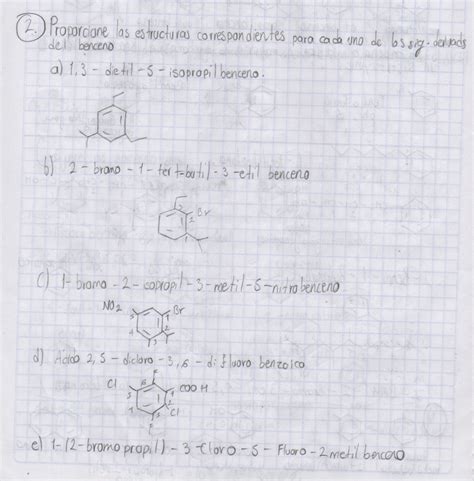 2. Proporcione las estructuras correspondientes para cada uno de los sig. derivads
del benceno
a) 1,3-detil-5-isopropilbenceno.
b) 2-bromo-1-tert-butil-3-etil benceno
3
2
Br
1
c) 1-bromo-2-isopropil-3-metil-5-nitrobenceno
NO2
Br
5
1
3
2
d) Ácido 2,5-dicloro-3,6-difluoro benzoico
F
Cl
6
COOH
5
1
4
2
3
Cl
F
e) 1-(2-bromopropil)-3-Cloro-5-Fluoro-2metil benceno